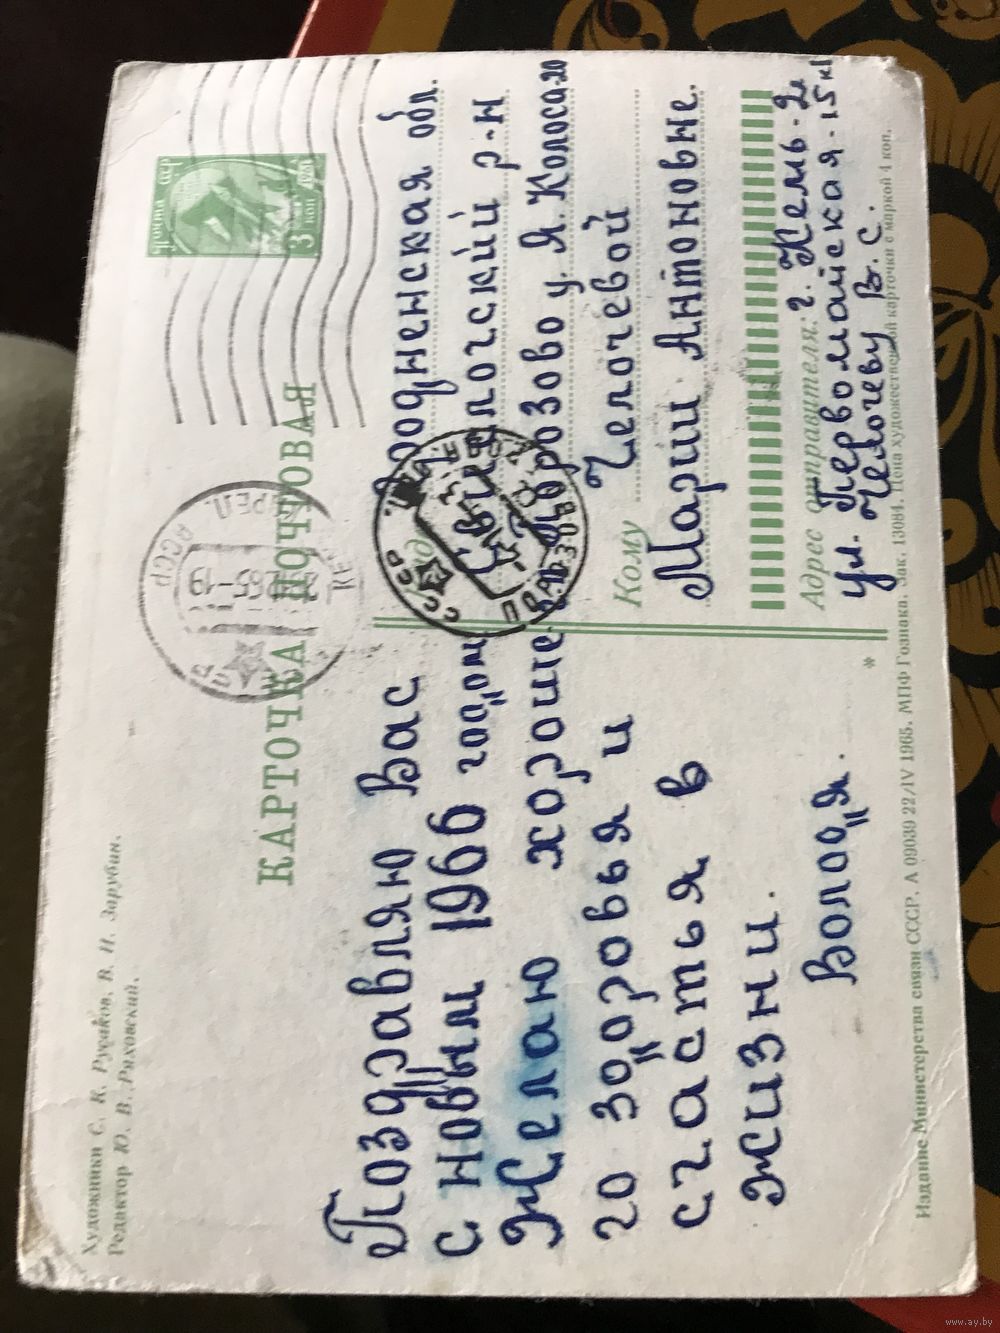 Художники С. К. Русаков, В. И. Зарубин.
Редактор Ю. В. Ряховский.
Почта СССР
3 коп 1961
КАРТОЧКА ПОЧТОВАЯ
Поздравляю Вас
с новым 1966 годом
Желаю хороше-
го здоровья и
счастья в
жизни.
Володя.
Гродненская обл.
Свислочский р-н
п. Порозово у. Я. Коласа 20
Кому Челочевой
Марии Антоновне.
Адрес отправителя: г. Кемь-2
ул. Первомайская-15 кв
Челочеву В. С.
Издание Министерства связи СССР. А 09039 22/IV 1965. МПФ Гознака. Зак. 13084. Цена художественной карточки с маркой 4 коп.
СССР
www.ay.by